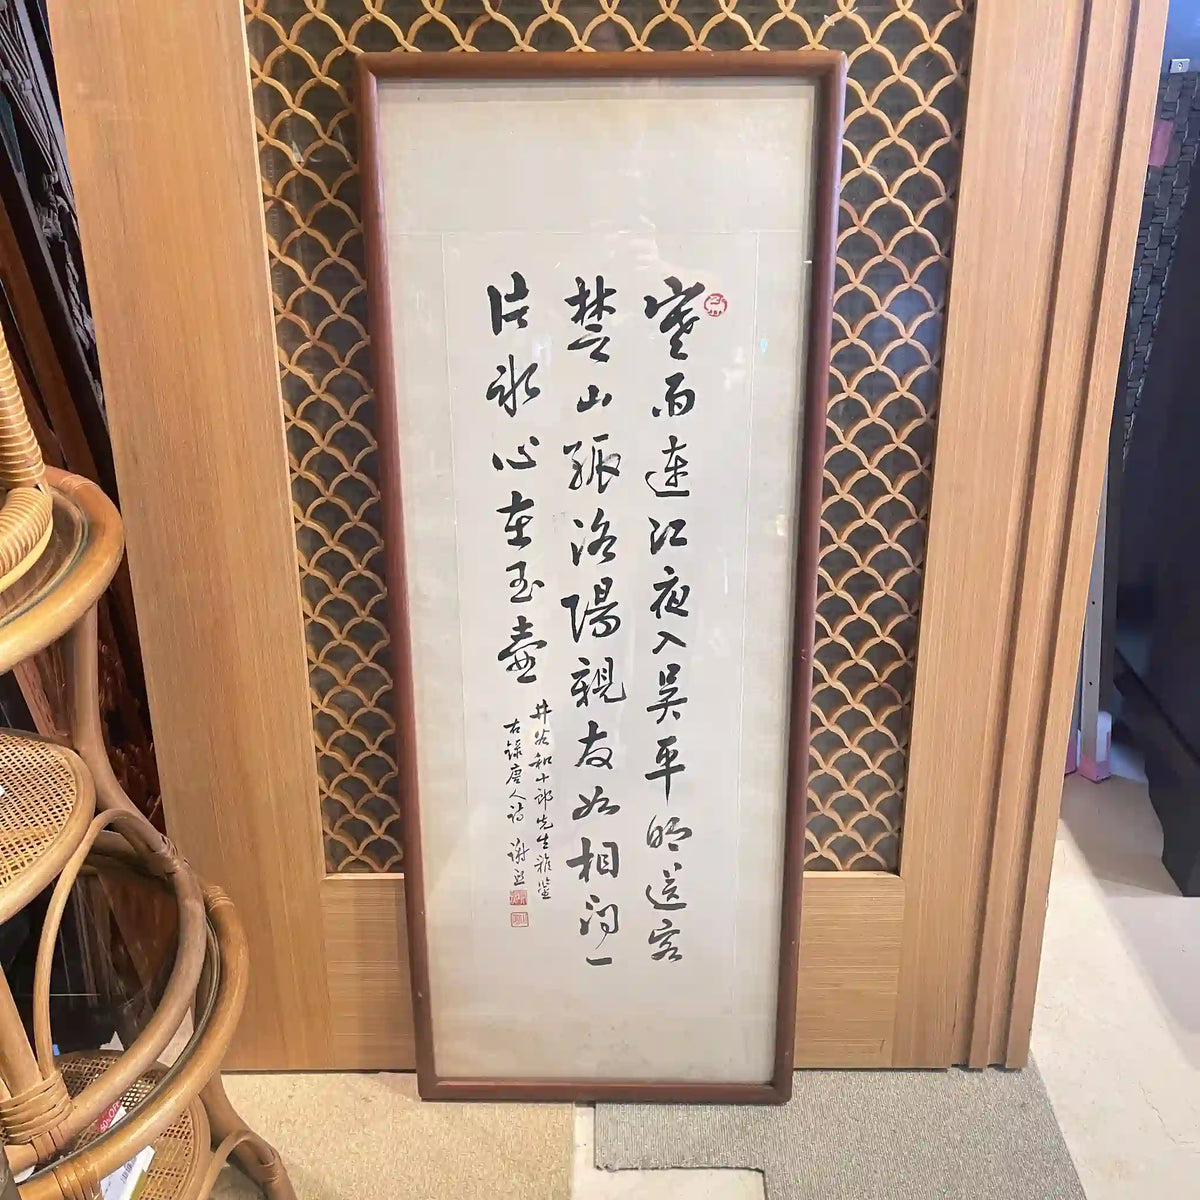 寒雨連江夜入吳平明送客
楚山孤洛陽親友如相問一
片冰心在玉壺
井谷和十郎先生雅鑒
右錄唐人詩 謝